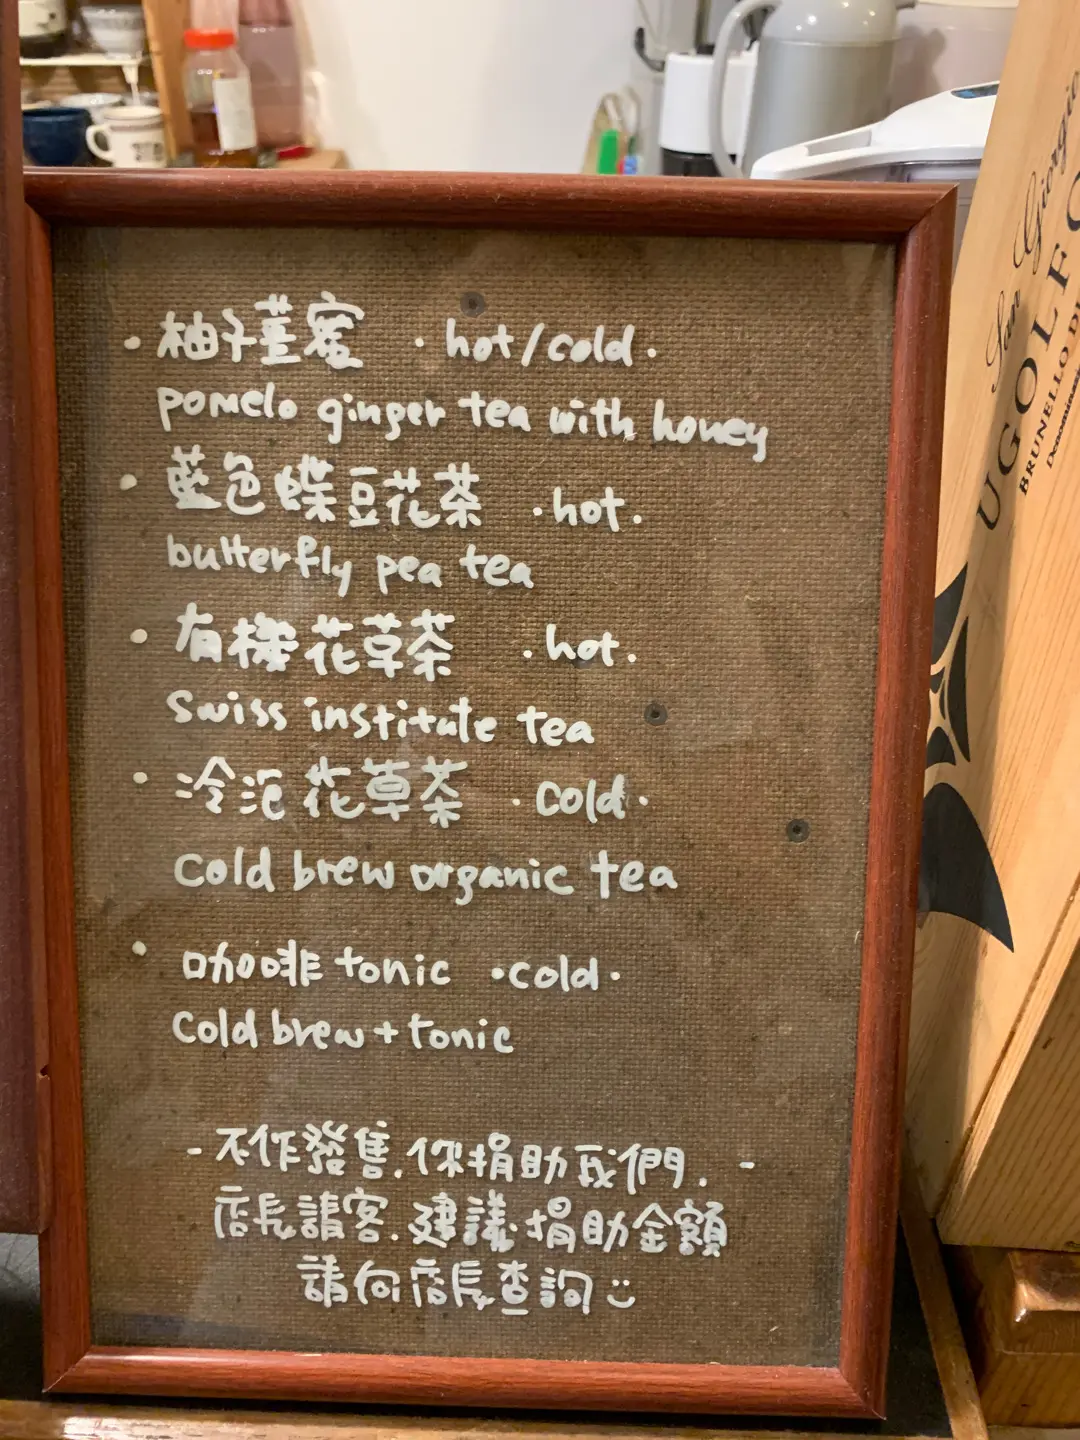 · 柚子薑蜜 · hot/cold ·
pomelo ginger tea with honey
· 藍色蝶豆花茶 · hot ·
butterfly pea tea
· 有機花草茶 · hot ·
Swiss institute tea
· 冷泡花草茶 · cold ·
Cold brew organic tea
· 咖啡 tonic · cold ·
Cold brew + tonic
- 不作發售.你捐助我們. -
店長請客.建議捐助金額
請向店長查詢
San Giorgio
UGOLFO
BRUNELLO D